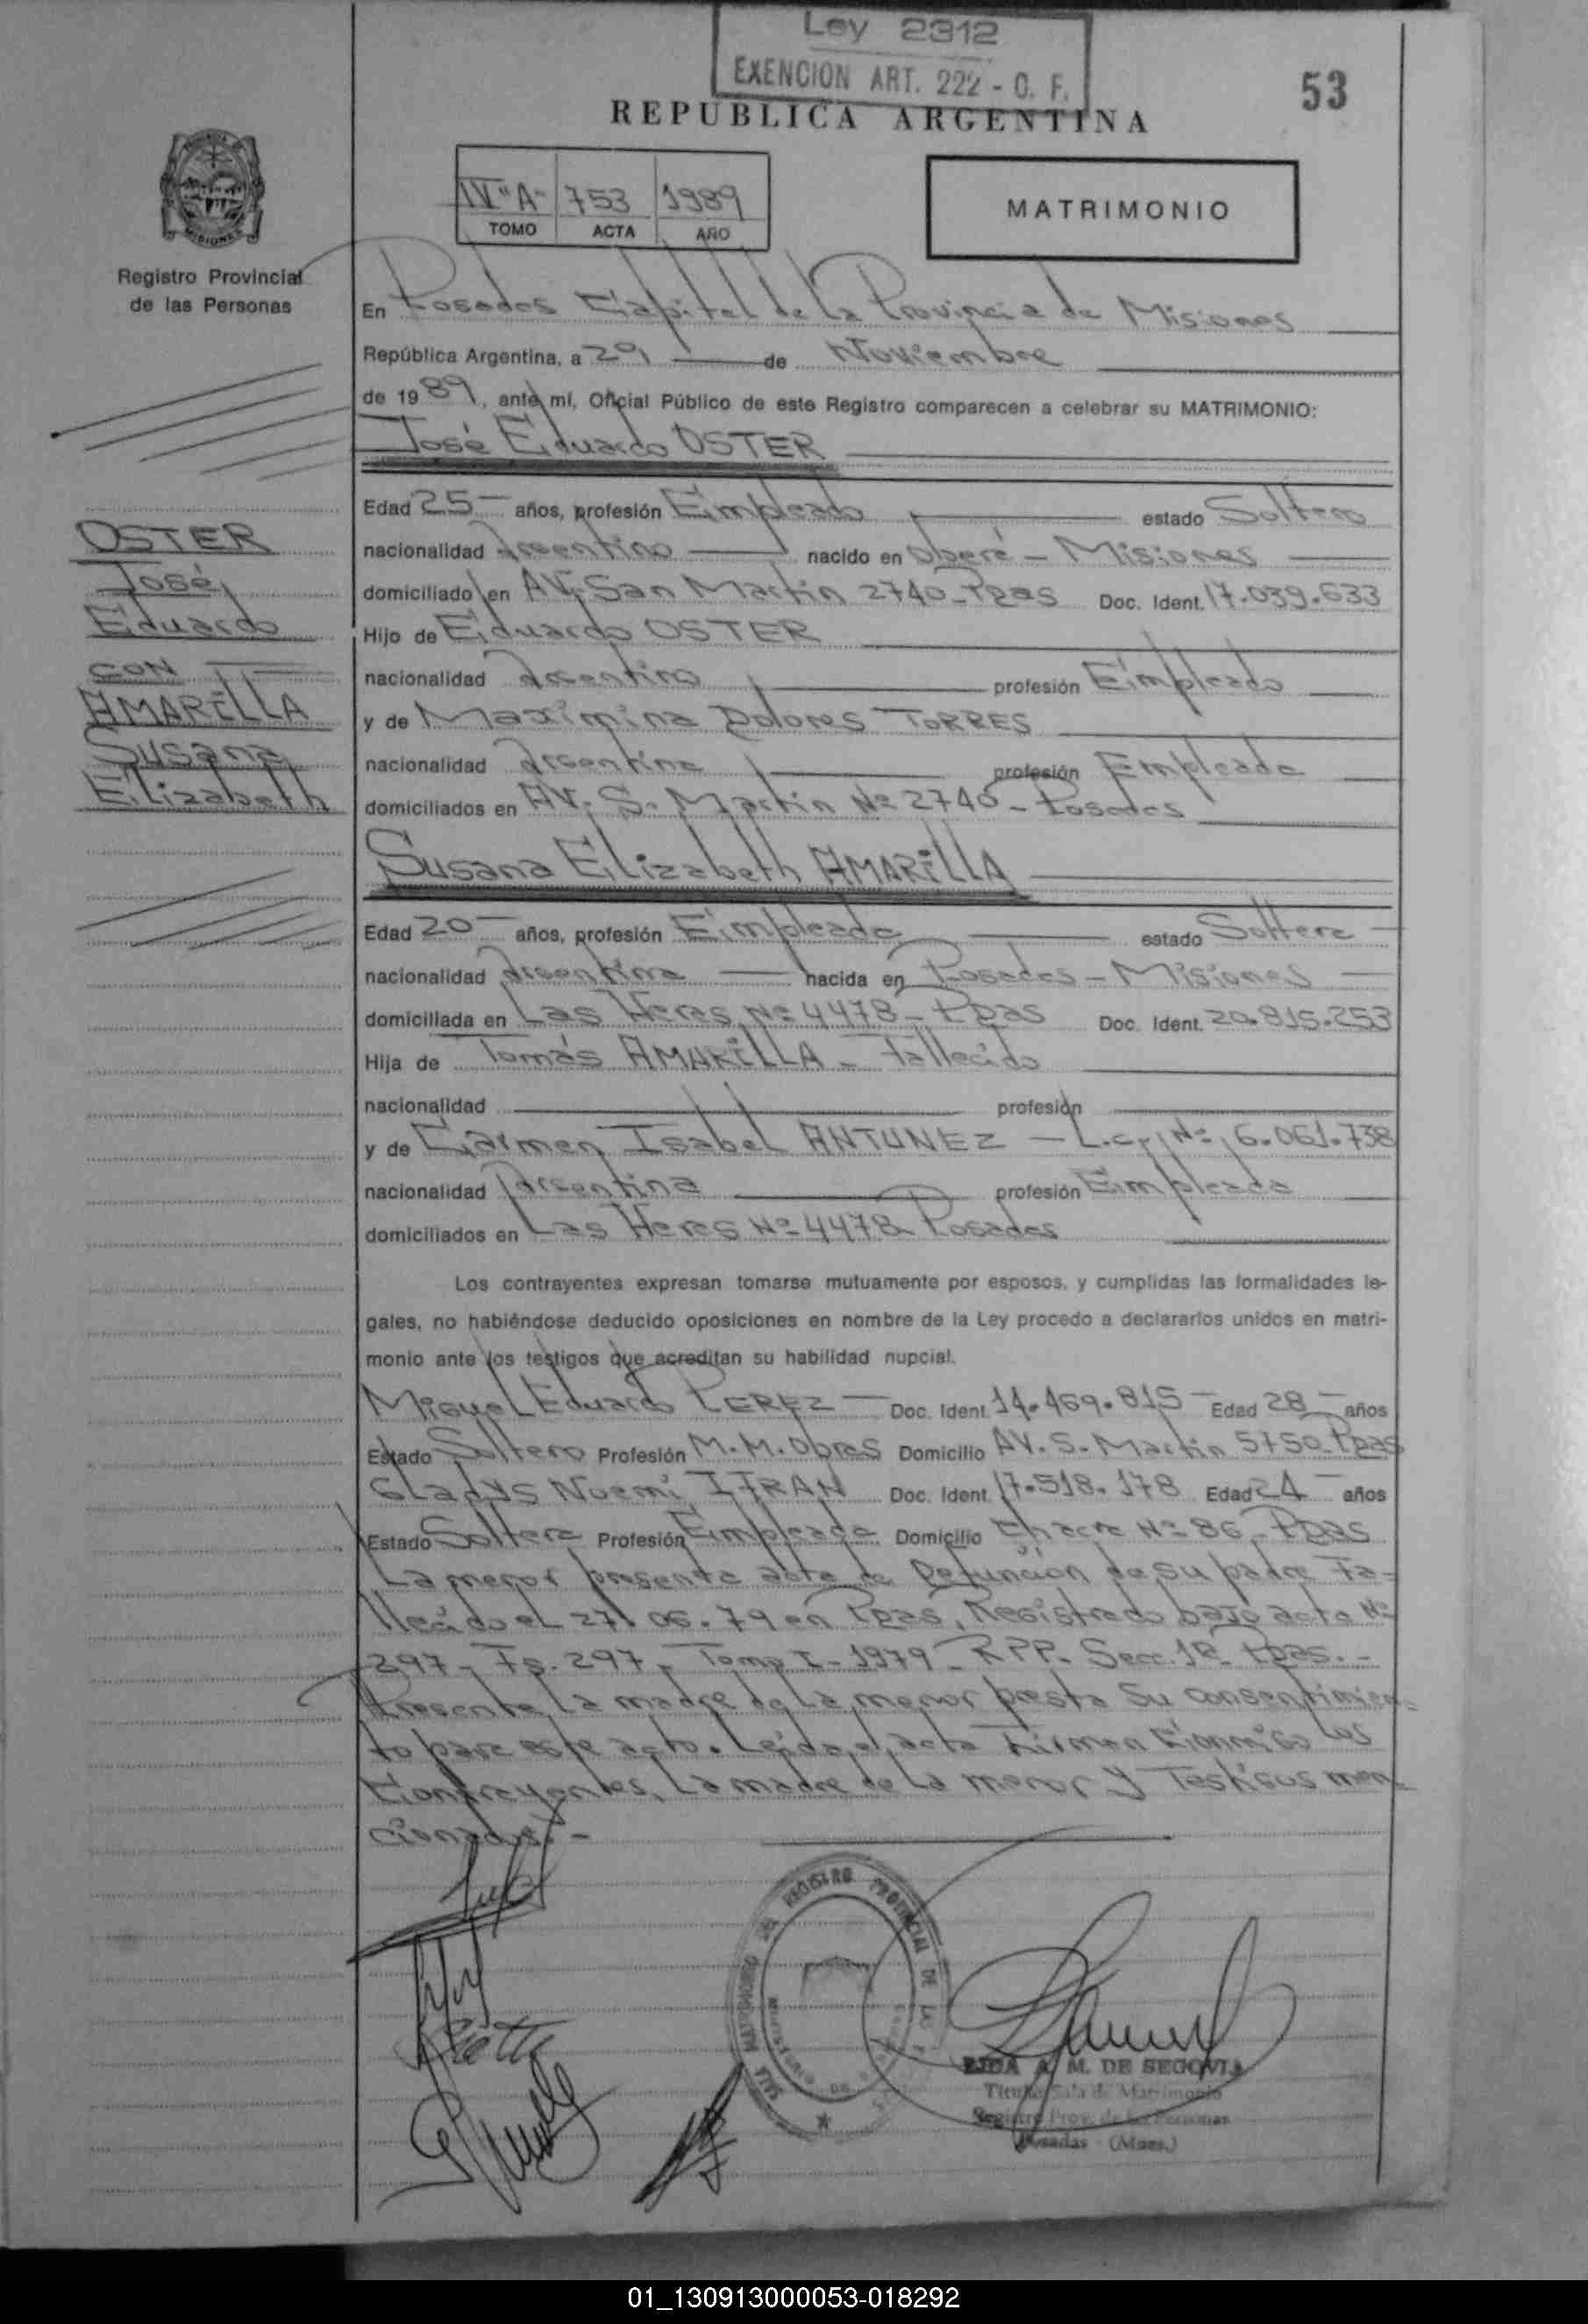 Ley 2312
EXENCION ART. 222 - O. F.
53
REPUBLICA ARGENTINA
IV "A" 753 1989
TOMO ACTA AÑO
MATRIMONIO
MISIONES
Registro Provincial
de las Personas
En Posadas Capital de la Provincia de Misiones
República Argentina, a 29 de Noviembre
de 1989, ante mí, Oficial Público de este Registro comparecen a celebrar su MATRIMONIO:
José Eduardo OSTER
Edad 25 años, profesión Empleado estado Soltero
nacionalidad Argentino nacido en Oberá - Misiones
domiciliado en AV. San Martin 2740 - Ppas Doc. Ident. 17.039.633
Hijo de Eduardo OSTER
nacionalidad Argentino profesión Empleado
y de Maximina Dolores TORRES
nacionalidad Argentina profesión Empleada
domiciliados en AV. S. Martin Nº 2740 - Posadas
OSTER
José
Eduardo
CON
AMARILLA
Susana
Elizabeth
Susana Elizabeth AMARILLA
Edad 20 años, profesión Empleada estado Soltera
nacionalidad Argentina nacida en Posadas - Misiones
domiciliada en Las Heras Nº 4478 - Ppas Doc. Ident. 20.815.253
Hija de Tomás AMARILLA - Fallecido
nacionalidad profesión
y de Carmen Isabel ANTUNEZ - L.C. Nº 6.061.738
nacionalidad Argentina profesión Empleada
domiciliados en Las Heras Nº 4478 Posadas
Los contrayentes expresan tomarse mutuamente por esposos, y cumplidas las formalidades le-
gales, no habiéndose deducido oposiciones en nombre de la Ley procedo a declararlos unidos en matri-
monio ante los testigos que acreditan su habilidad nupcial.
Miguel Eduardo PEREZ Doc. Ident. 14.469.815 Edad 28 años
Estado Soltero Profesión M.M.Obras Domicilio AV. S. Martin 5750 - Ppas
Gladys Noemi ITRAN Doc. Ident. 17.518.178 Edad 24 años
Estado Soltera Profesión Empleada Domicilio Chacra Nº 86 - Ppas
La menor presenta acta de Defunción de su padre Fa-
llecido el 27.06.79 en Ppas, Registrado bajo acta Nº
297 - Fs. 297 - Tomo I - 1979 - RPP - Secc. 1ª Ppas. -
Presente la madre de la menor presta su consentimien-
to para este acto. Leida el acta Firman Conmigo los
Contrayentes, La madre de la menor y Testigos men-
cionados. -
SALA MATRIMONIO DEL REGISTRO PROVINCIAL DE LAS
A. M. DE SEGOVIA
Titular Sala de Matrimonio
Registro Prov. de las Personas
Posadas - (Mnes.)
01_130913000053-018292